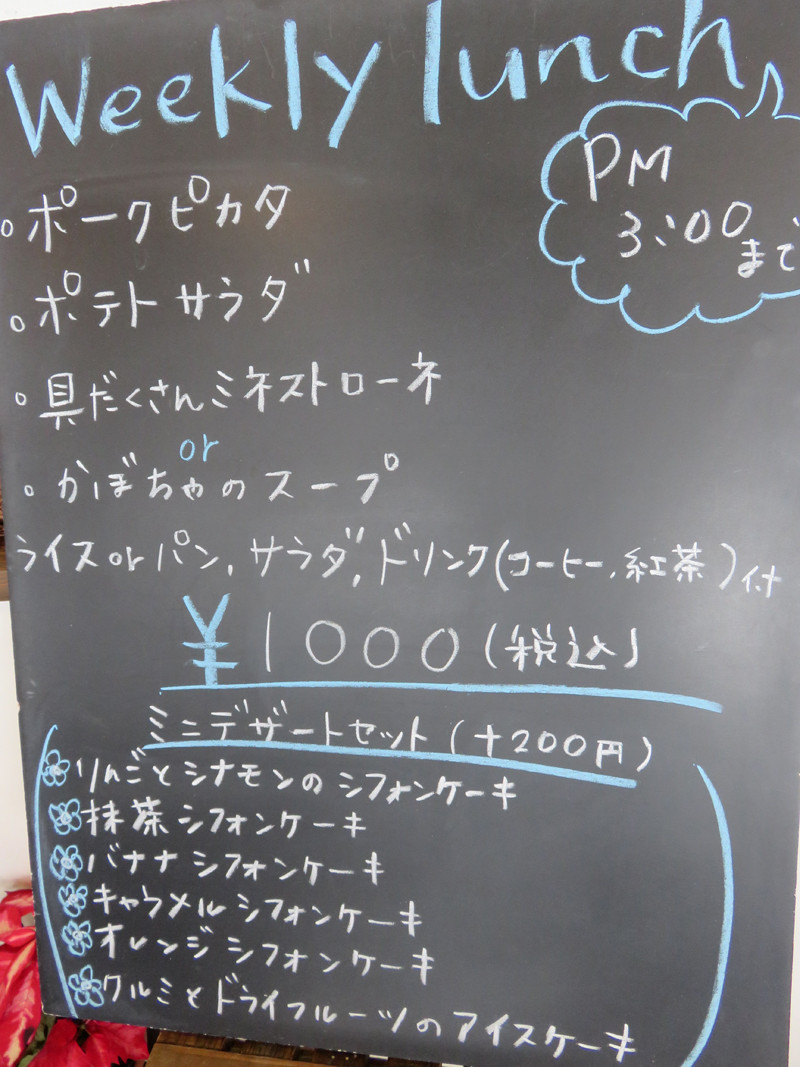 Weekly lunch
PM
3:00
まで
。ポークピカタ
。ポテトサラダ
。具だくさんミネストローネ
or
。かぼちゃのスープ
ライスorパン,サラダ,ドリンク(コーヒー,紅茶)付
¥1000(税込)
ミニデザートセット(+200円)
りんごとシナモンのシフォンケーキ
抹茶シフォンケーキ
バナナシフォンケーキ
キャラメルシフォンケーキ
オレンジシフォンケーキ
クルミとドライフルーツのアイスケーキ